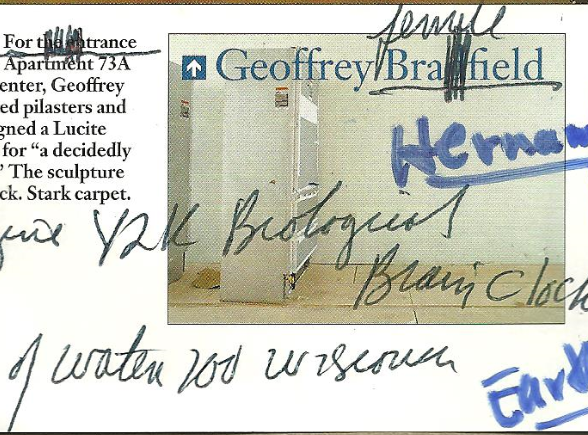 For the entrance
Apartment 73A
enter, Geoffrey
ed pilasters and
gned a Lucite
for “a decidedly
The sculpture
ck. Stark carpet.
female
Geoffrey Bradfield
Hernan
Y2K Biological
Brain Clock
of water zoo wisconsin
Eart